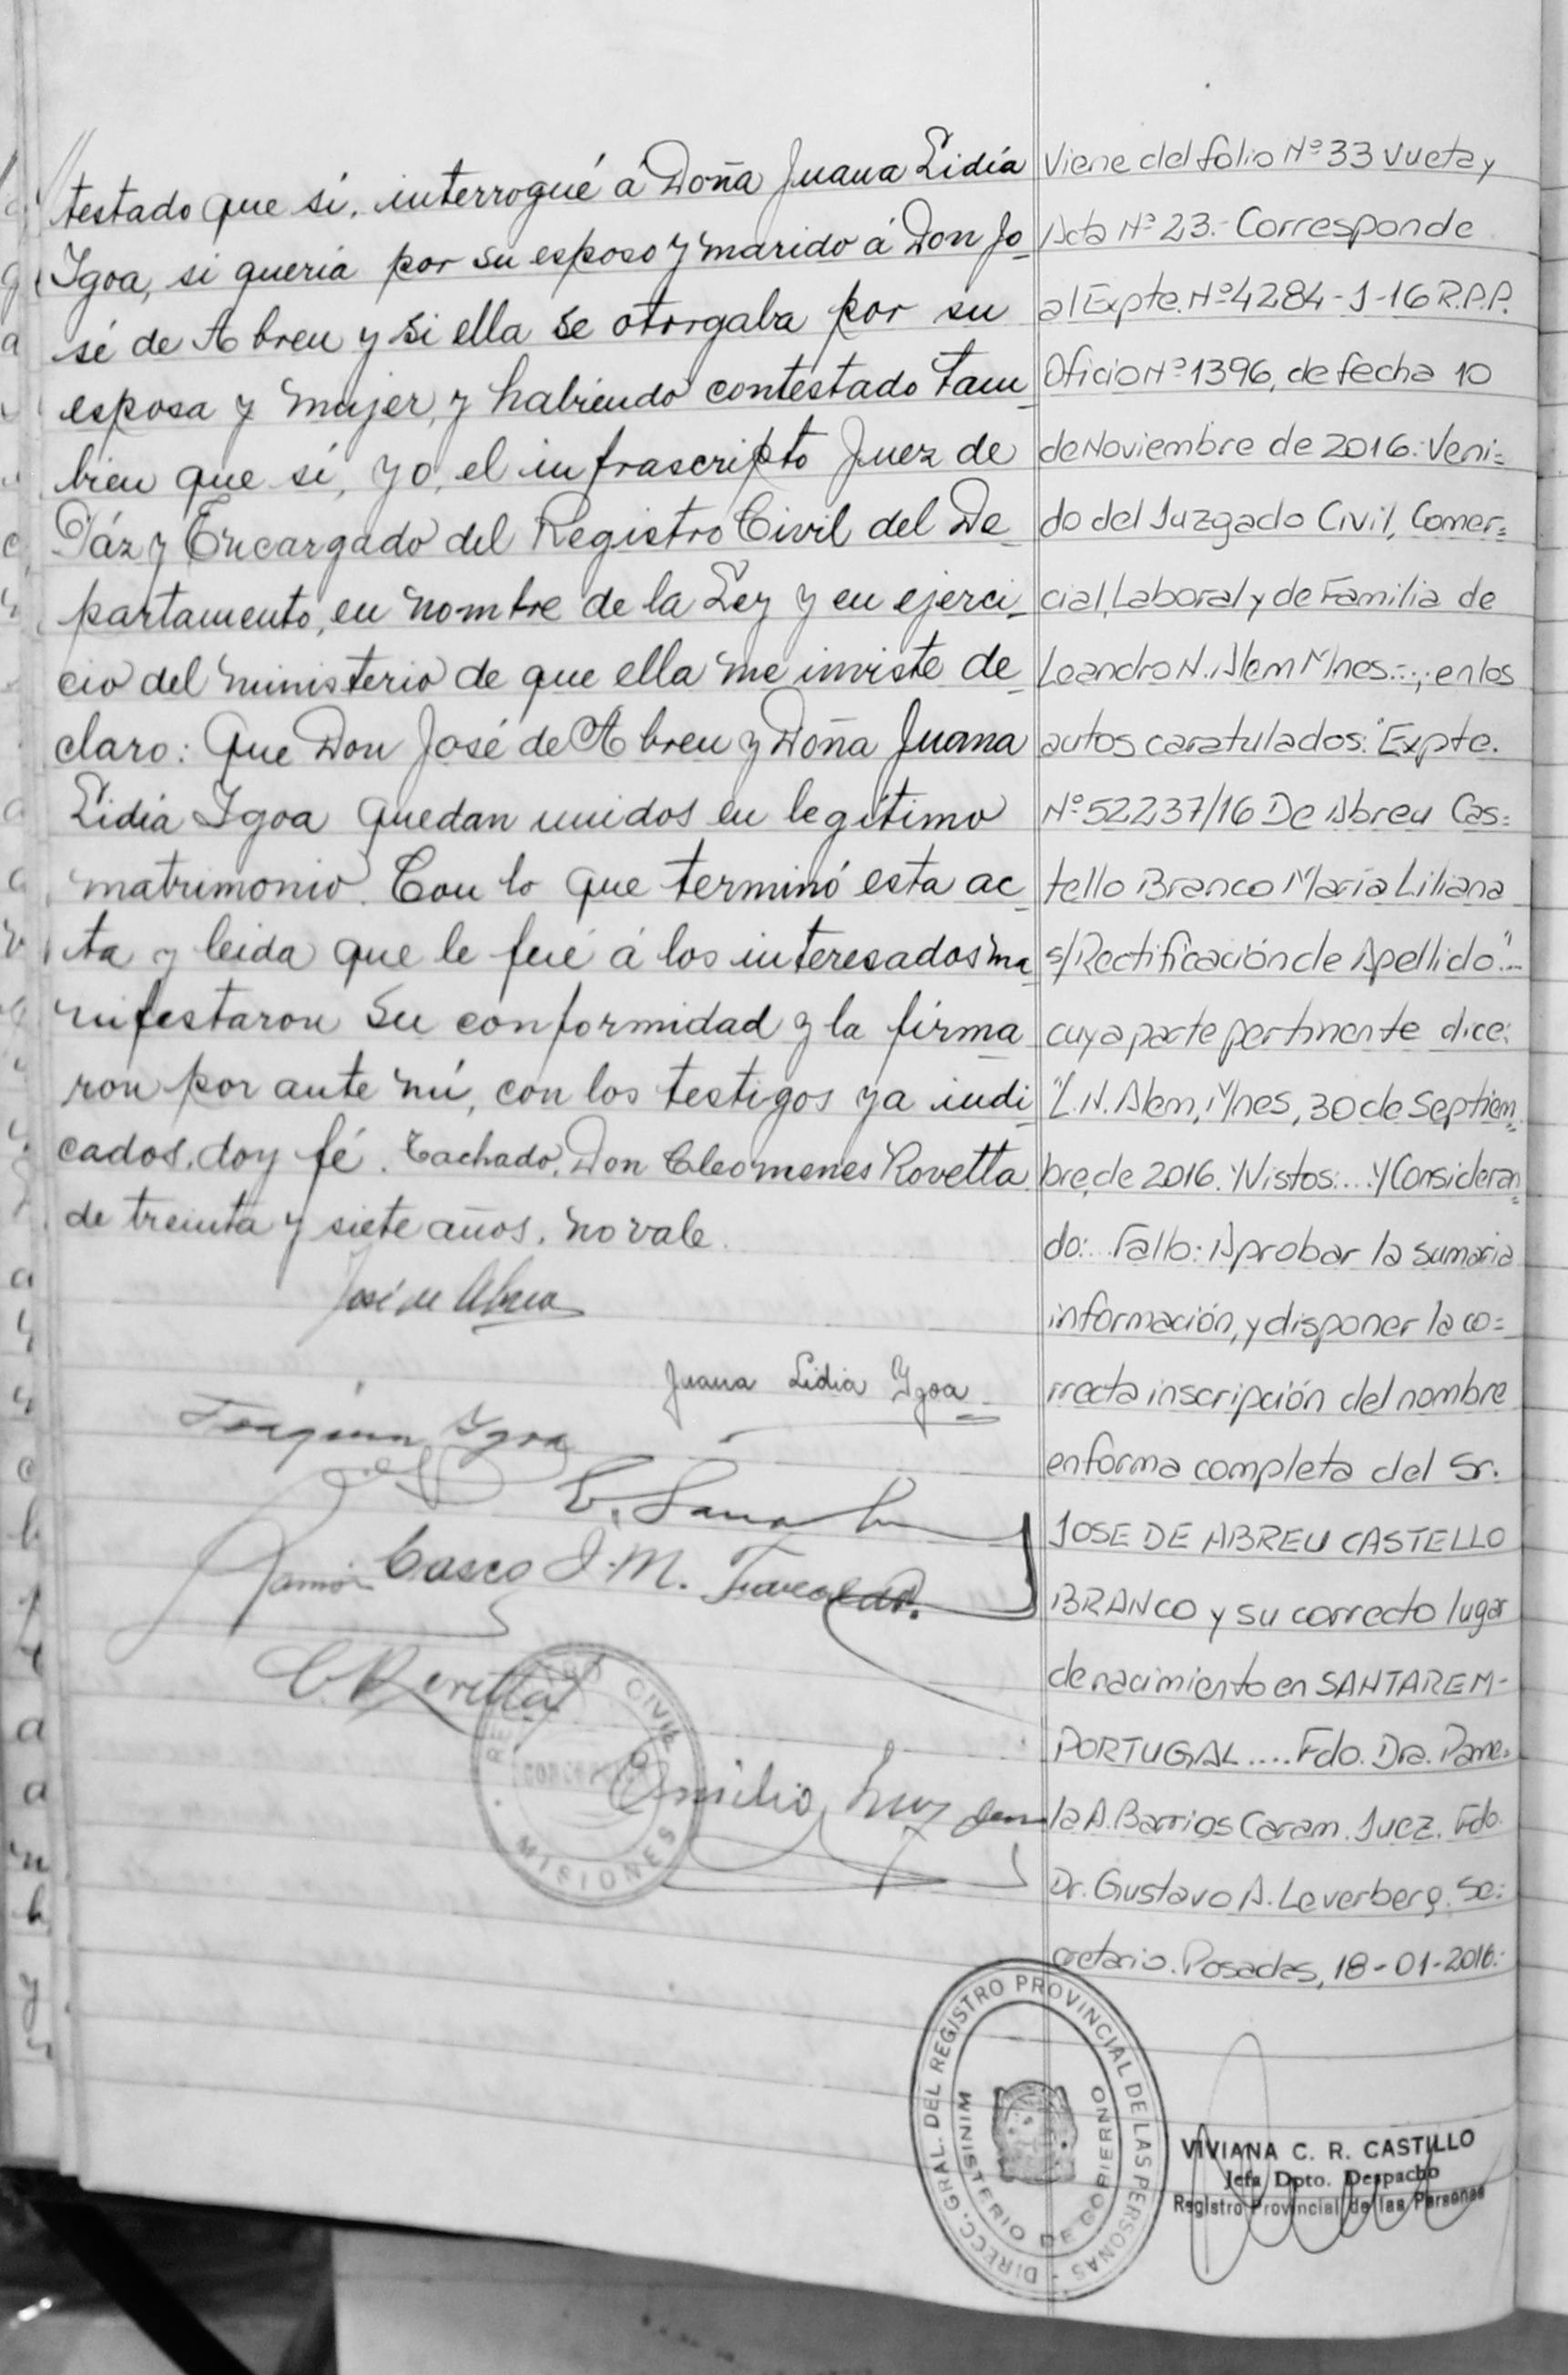 testado que si, interrogué á Doña Juana Lidia
Igoa, si queria por su esposo y marido á Don Jo
sé de Abreu y si ella se otorgaba por su
esposa y mujer, y habiendo contestado tam
bien que si, yo, el infrascripto Juez de
Páz y Encargado del Registro Civil del De
partamento, en nombre de la Ley y en ejerci
cio del ministerio de que ella me inviste de
claro: Que Don José de Abreu y Doña Juana
Lidia Igoa quedan unidos en legítimo
matrimonio. Con lo que terminó esta ac
ta y leida que le fué á los interesados ma
nifestaron su conformidad y la firma
ron por ante mi, con los testigos ya indi
cados, doy fé. Tachado, Don Cleomenes Rovetta
de treinta y siete años, no vale.
José de Abreu
Juana Lidia Ygoa
Joaquin Igoa
Ramón Casco J. M.
C. Rovetta
REGISTRO CIVIL
MISIONES
Emilio
Viene del folio Nº 33 Vueta y
Acta Nº 23.- Corresponde
al Expte. Nº 4284-J-16 R.P.P.
Oficio Nº 1396, de fecha 10
de Noviembre de 2016: Veni=
do del Juzgado Civil, Comer=
cial, Laboral y de Familia de
Leandro N. Alem Mnes.-.; en los
autos caratulados: "Expte.
Nº 52237/16 De Abreu Cas=
tello Branco María Liliana
s/ Rectificación de Apellido"..-
cuya parte pertinente dice:
"L.N. Alem, Mnes, 30 de Septiem=
bre, de 2016. Y Vistos:... Y Consideran=
do:... Fallo: Aprobar la sumaria
información, y disponer la co=
rrecta inscripción del nombre
en forma completa del Sr.
JOSE DE ABREU CASTELLO
BRANCO y su correcto lugar
de nacimiento en SANTAREM-
PORTUGAL .... Fdo. Dra. Pame=
la A. Barrios Caram. Juez. Fdo.
Dr. Gustavo A. Leverberg. Se=
cretario. Posadas, 18-01-2016.-
DIRECC. GRAL. DEL REGISTRO PROVINCIAL DE LAS PERSONAS -
MINISTERIO DE GOBIERNO
VIVIANA C. R. CASTILLO
Jefa Dpto. Despacho
Registro Provincial de las Personas